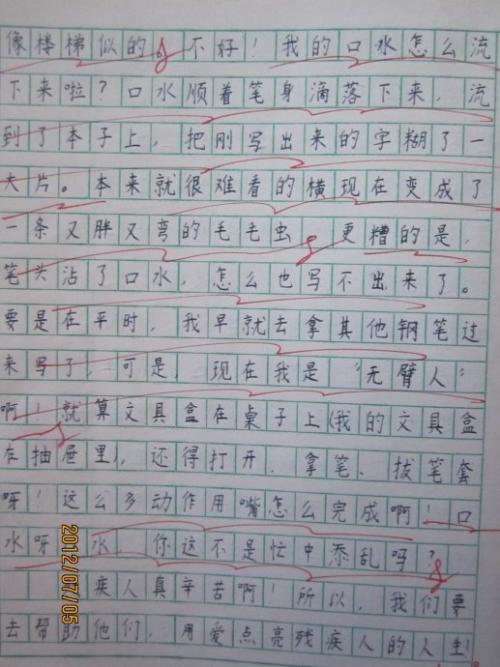 像楼梯似的。不好！我的口水怎么流
下来啦？口水顺着笔身滴落下来，流
到了本子上，把刚写出来的字糊了一
大片。本来就很难看的横现在变成了
一条又胖又弯的毛毛虫。更糟的是，
笔头沾了口水，怎么也写不出来了。
要是在平时，我早就去拿其他钢笔过
来写了，可是，现在我是“无臂人”
啊！就算文具盒在桌子上(我的文具盒
在抽屉里)，还得打开、拿笔、拔笔套
呀！这么多动作用嘴怎么完成啊！口
水呀 水，你这不是忙中添乱吗？
疾人真辛苦啊！所以，我们要
去帮助他们，用爱点亮残疾人的人生！
2012/07/05